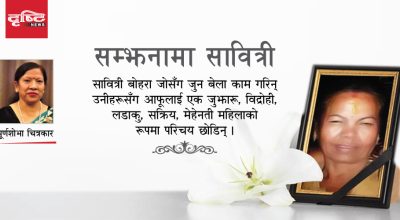 दृष्टि
NEWS
सम्झनामा सावित्री
सावित्री बोहरा जोसँग जुन बेला काम गरिन्
उनीहरूसँग आफूलाई एक जुझारू, विद्रोही,
लडाकु, सक्रिय, मेहेनती महिलाको
रूपमा परिचय छोडिन् ।
पूर्णशोभा चित्रकार